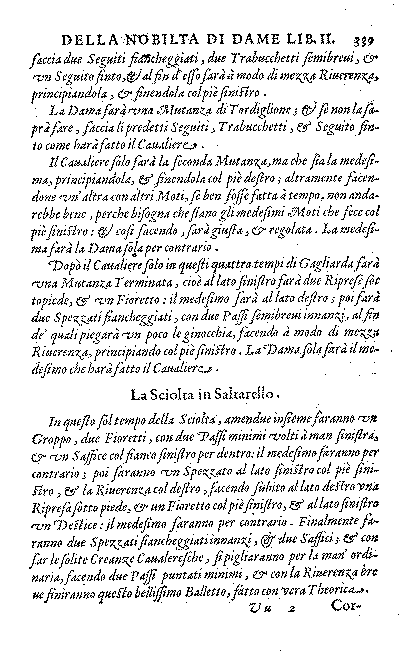 DELLA NOBILTA DI DAME LIB. II. 339
faccia due Seguiti fiancheggiati, due Trabucchetti semibreui, &
vn Seguito finto, & al fin d'esso farà à modo di mezza Riuerenza,
principiandola, & finendola col piè sinistro.
La Dama farà vna Mutanza di Tordiglione; & se non la sa-
prà fare, faccia li predetti Seguiti, Trabucchetti, & Seguito fin-
to come harà fatto il Caualiere.
Il Caualiere solo farà la seconda Mutanza, ma che sia la medesi-
ma, principiandola, & finendola col piè destro; altramente facen-
done vn' altra con altri Moti, se ben fosse fatta à tempo, non anda-
rebbe bene, perche bisogna che siano gli medesimi Moti che fece col
piè sinistro: & così facendo, sarà giusta, & regolata. La medesi-
ma farà la Dama sola per contrario.
Dopò il Caualiere solo in questi quattro tempi di Gagliarda farà
vna Mutanza Terminata, cioè al lato sinistro farà due Riprese sot
topiede, & vn Fioretto: il medesimo farà al lato destro; poi farà
due Spezzati fiancheggiati, con due Passi semibreui innanzi, al fin
de' quali piegarà vn poco le ginocchia, facendo à modo di mezza
Riuerenza, principiando col piè sinistro. La Dama sola farà il me-
desimo che harà fatto il Caualiere.
La Sciolta in Saltarello.
In questo sol tempo della Sciolta, amendue insieme faranno vn
Groppo, due Fioretti, con due Passi minimi volti à man sinistra,
& vn Saffice col fianco sinistro per dentro: il medesimo faranno per
contrario; poi faranno vn Spezzato al lato sinistro col piè sini-
stro, & la Riuerenza col destro, facendo subito al lato destro vna
Ripresa sotto piede, & vn Fioretto col piè sinistro, & al lato sinistro
vn Destice: il medesimo faranno per contrario. Finalmente fa-
ranno due Spezzati fiancheggiati innanzi, & due Saffici; & con
far le solite Creanze Caualeresche, si pigliaranno per la man' ordi-
naria, facendo due Passi puntati minimi, & con la Riuerenza bre
ue finiranno questo bellissimo Balletto, fatto con vera Theorica.
Vu 2 Cor-